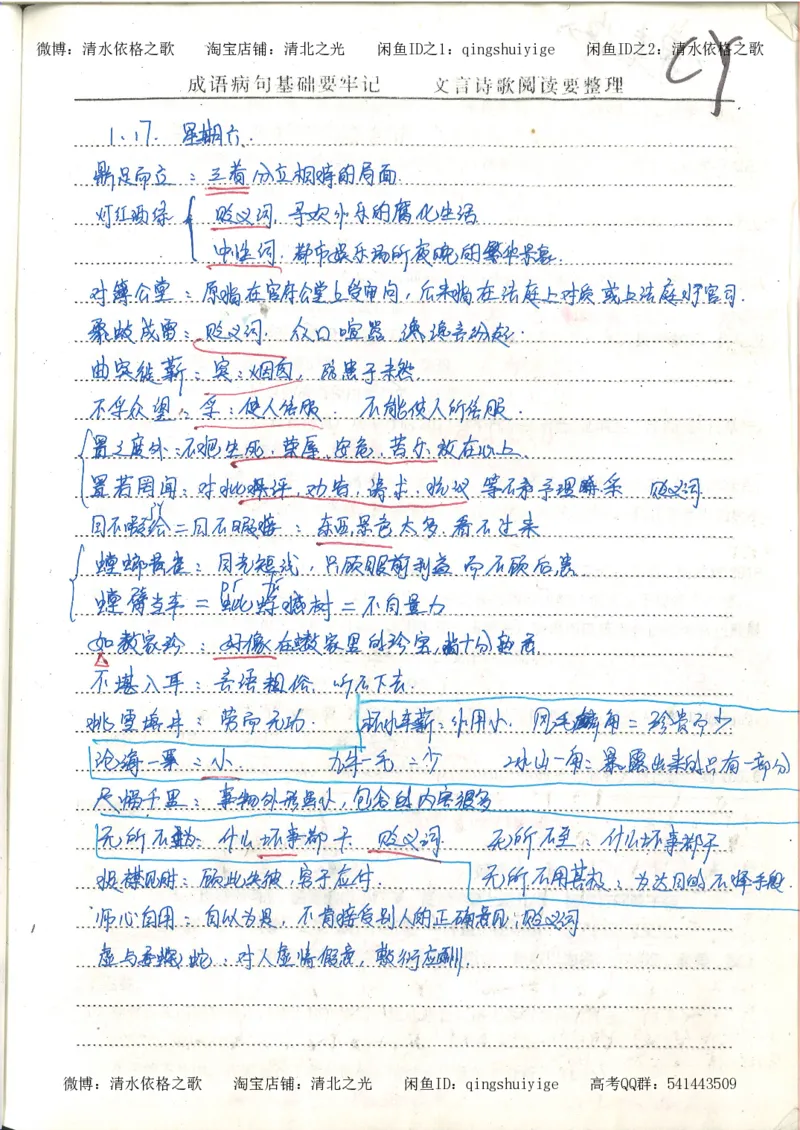 微博：清水依格之歌 淘宝店铺：清北之光 闲鱼ID之1：qingshuiyige 闲鱼ID之2：清水依格之歌
CY
成语病句基础要牢记 文言诗歌阅读要整理
1.17. 星期六.
鼎足而立：三者分立相持的局面.
灯红酒绿 贬义词. 寻欢作乐的腐化生活
中性词. 都市娱乐场所夜晚的繁华景象.
对簿公堂：原指在官府公堂上受审问，后来指在法庭上对质或上法庭打官司.
聚蚊成雷：贬义词. 众口喧嚣
曲突徙薪：突：烟囱，防患于未然.
不孚众望：孚：使人信服 不能使人所信服.
置之度外：不把生死.荣辱.安危.苦乐放在心上.
置若罔闻：对批评.劝告.请求.抗议等不予理睬 贬义词
目不暇给=目不暇接：东西.景色太多.看不过来
jǐ
螳螂黄雀：目光短浅，只顾眼前利益而不顾后患.
螳臂当车=蚍蜉撼树=不自量力
pí fú
如数家珍：好像在数家里的珍宝，指十分熟悉.
不堪入耳：言语粗俗. 听不下去.
挑雪填井：劳而无功. 杯水车薪：作用小. 凤毛麟角=珍贵而少
沧海一粟：小. 九牛一毛：少 冰山一角：暴露出来的只有一部分
尺幅千里：事物外形虽小，包含的内容很多
无所不为：什么坏事都干 贬义词 无所不至：什么坏事都干
捉襟见肘：顾此失彼，穷于应付. 无所不用其极：为达目的不择手段.
师心自用：自以为是，不肯接受别人的正确意见；贬义词
虚与委蛇：对人虚情假意，敷衍应酬.
微博：清水依格之歌 淘宝店铺：清北之光 闲鱼ID：qingshuiyige 高考QQ群：541443509